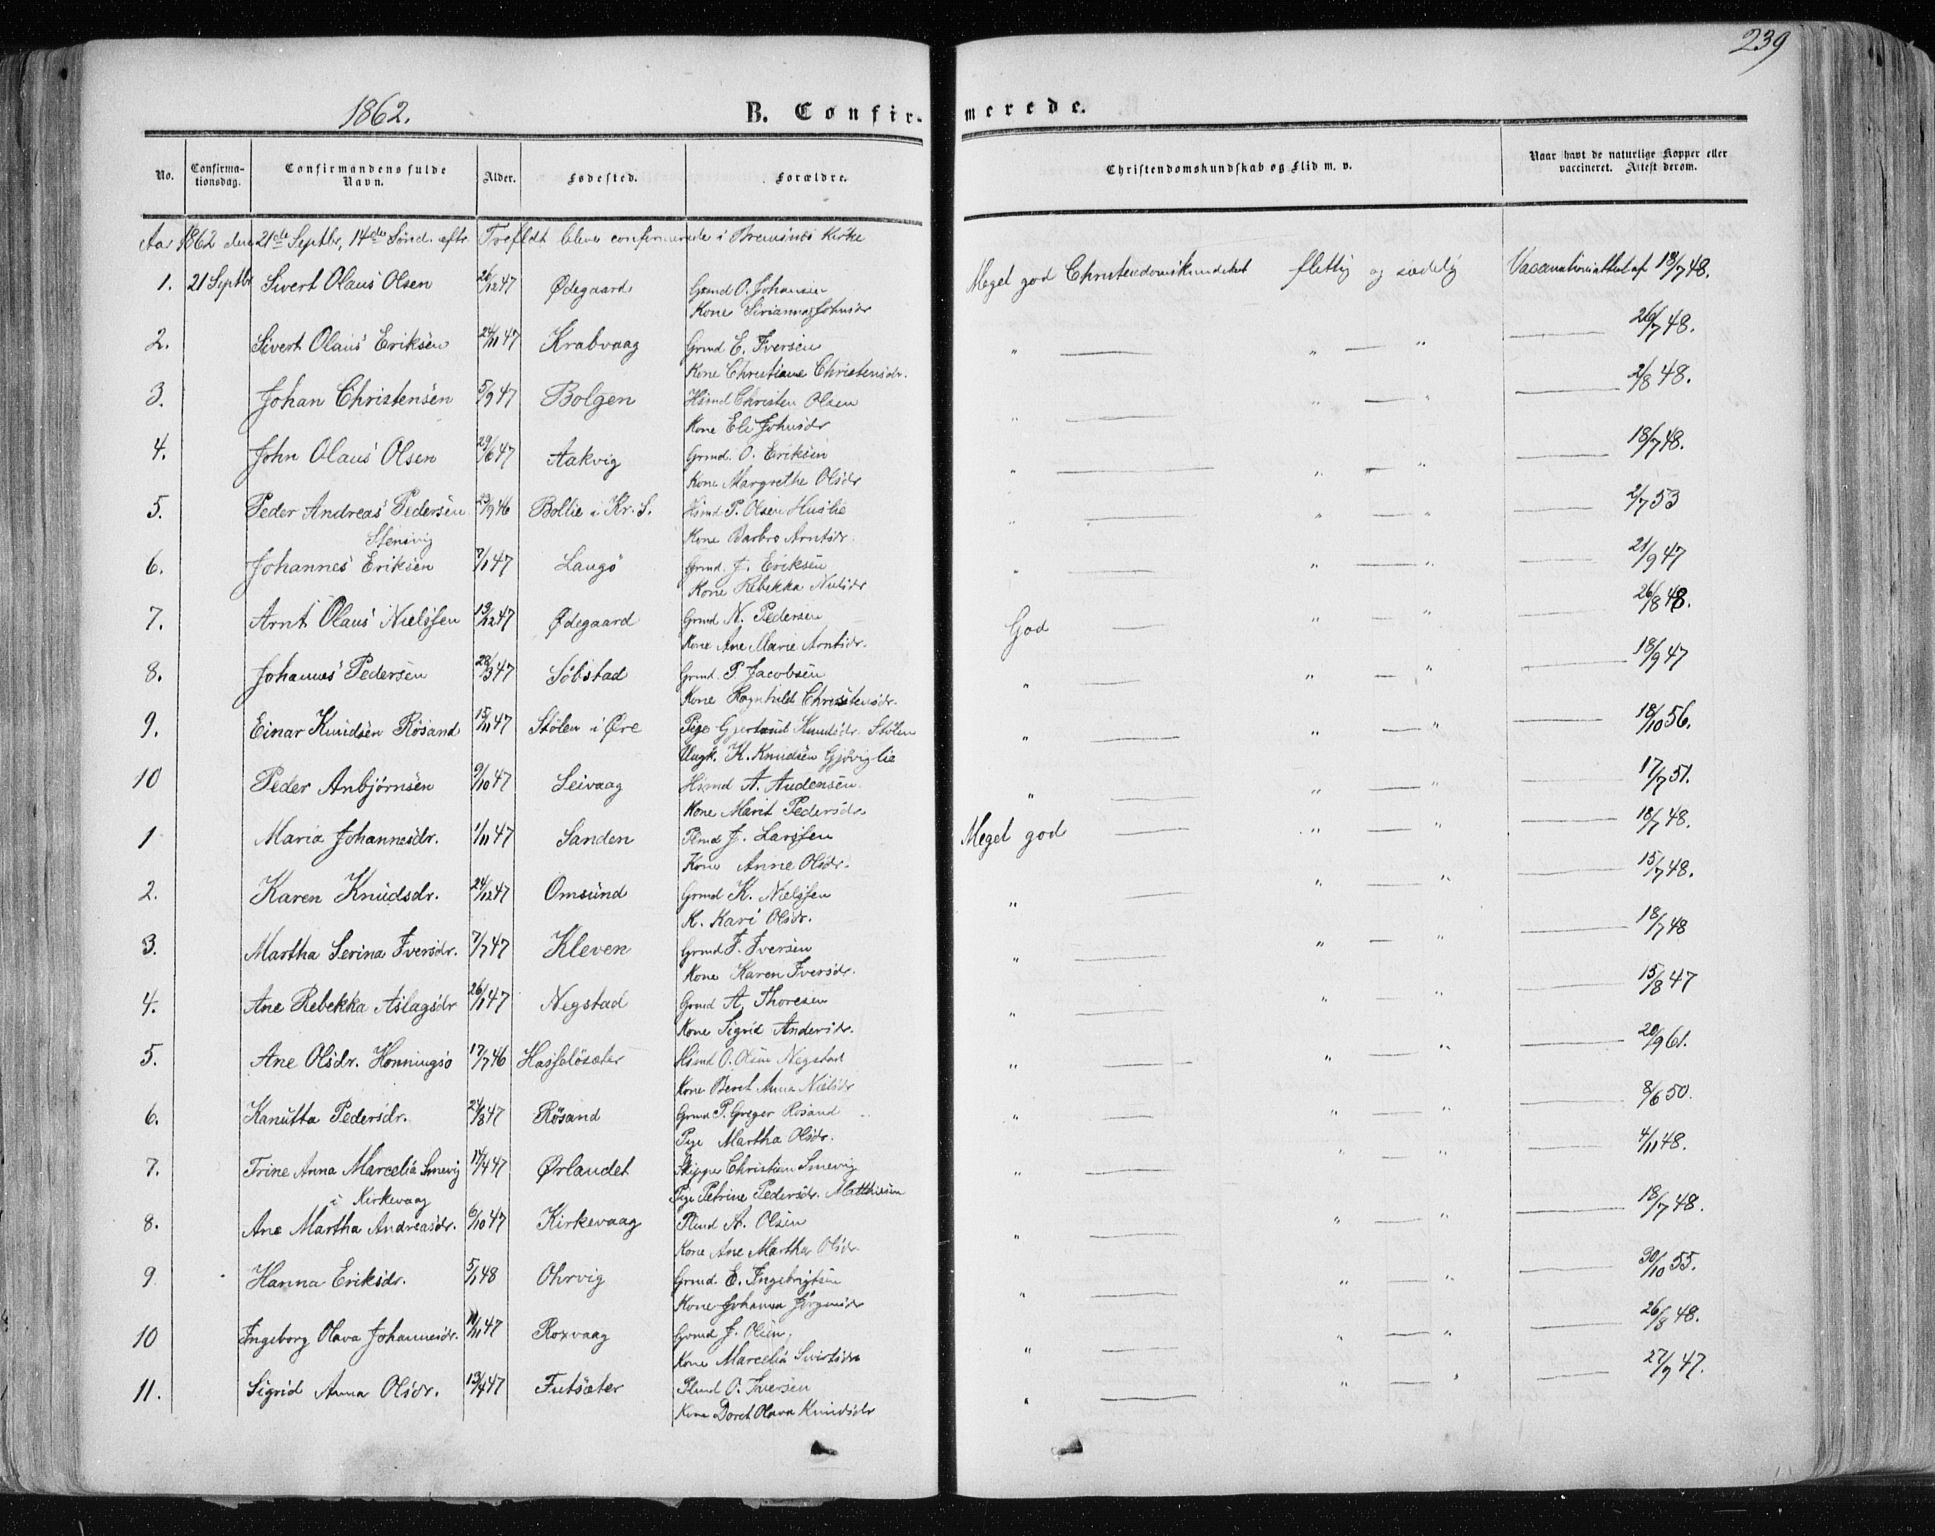 239
1862. B. Confirmerede.
No. Confirmationsdag. Confirmandens fulde Navn. Alder. Fødested. Forældre. Christendomskundskab og Flid m. v. Naar havt de naturlige Kopper eller vaccineret. Attest derom.
Aar 1862 den 21de Septbr, 14de Sønd. eftr. Trefldt bleve confirmerede i Bremsnes Kirke
1. 21 Septbr Sivert Olaus Olsen 26/12 47 Ødegaard Grmd O. Johansen Meget god Christendomskundskab flittig og sædelig Vaccinationsattest af 18/7 48.
Kone Siriannes Johnsdr
2. Sivert Olaus Eriksen 24/11 47 Krabvaag Grmd E. Iversen " " " 26/7 48.
Kone Christiane Christensdr.
3. Johan Christensen 5/9 47 Bolgen Hsmd Christen Olsen " " " 2/8 48.
Kone Eli Johnsdr
4. John Olaus Olsen 29/6 47 Aakvig Grmd. O. Eriksen " " " 18/7 48.
Kone Margrethe Olsdr
5. Peder Andreas Pedersen 23/9 46 Bollie i Kr. S. Hsmd P. Olsen Huslie " " " 2/7 53
Stensvig Kone Barbro Arntsdr
6. Johannes Eriksen 7/1 47 Langö Grmd. J. Eriksen " " " 21/9 47
Kone Rebekka Nielsdr
7. Arnt Olaus Nielssen 19/12 47 Ødegaard Grmd N. Pedersen God " " 26/8 48.
Kone Ane Marie Arntsdr.
8. Johannes Pedersen 28/3 47 Söbstad Grmd. P. Jacobsen " " " 18/9 47
Kone Ragnhild Christensdr.
9. Einar Knudsen Rösand 15/11 47 Stölen i Øre Pige Gjertrud Knudsdr. Stölen " " " 18/10 56.
Ungk. K. Knudsen Gjöviglie
10 Peder Anbjørnsen 9/10 47 Leivaag Hsmd A. Audensen " " " 17/7 51.
Kone Marit Pedersdr
1 Maria Johannesdr. 1/11 47 Sanden Plmd J. Larssen Meget god " " 18/7 48.
Kone Anne Olsdr.
2. Karen Knudsdr. 24/12 47 Omsund Grmd K. Nielssen " " " 15/7 48.
K. Kari Olsdr.
3. Martha Serina Iversdr. 7/7 47 Kleven Grmd I. Iversen " " " 18/7 48
Kone Karen Iversdr.
4. Ane Rebekka Aslagsdr 26/1 47 Negstad Grmd A. Thoresen " " " 15/8 47
Kone Sigrid Andersdr.
5. Ane Olsdr. Honningsö 17/7 46 Hasselösæter Hsmd O. Olsen Negstad " " " 20/9 61.
Kone Beret Anna Nielsdr
6. Kanutta Pedersdr. 24/8 47 Rösand Grmd P. Greger Rösand " " " 8/6 50.
Pige Martha Olsdr.
7. Trine Anna Marcelia Smevig 14/4 47 Ørlandet Skipper Christian Smevig " 4/11 48.
i Kirkevaag Pige Petrine Pedersdr. Matthisen
8. Ane Martha Andreasdr. 6/10 47 Kirkevaag Plmd A. Olsen " " " 18/7 48.
Kone Ane Martha Olsdr.
9. Hanna Eriksdr. 5/1 48 Ohrvig Grmd. E. Ingebrigtsen " " " 30/10 55.
Kone Johanna Jörgensdr
10 Ingeborg Olava Johannesdr. 11/11 47 Roxvaag Grmd J. Olsen, " " " 26/8 48.
Kone Marcelia Sivertsdr
11. Sigrid Anna Olsdr. 13/4 47 Futsæter Plmd O. Iversen " " " 27/9 47.
Kone Doret Olava Knudsdr